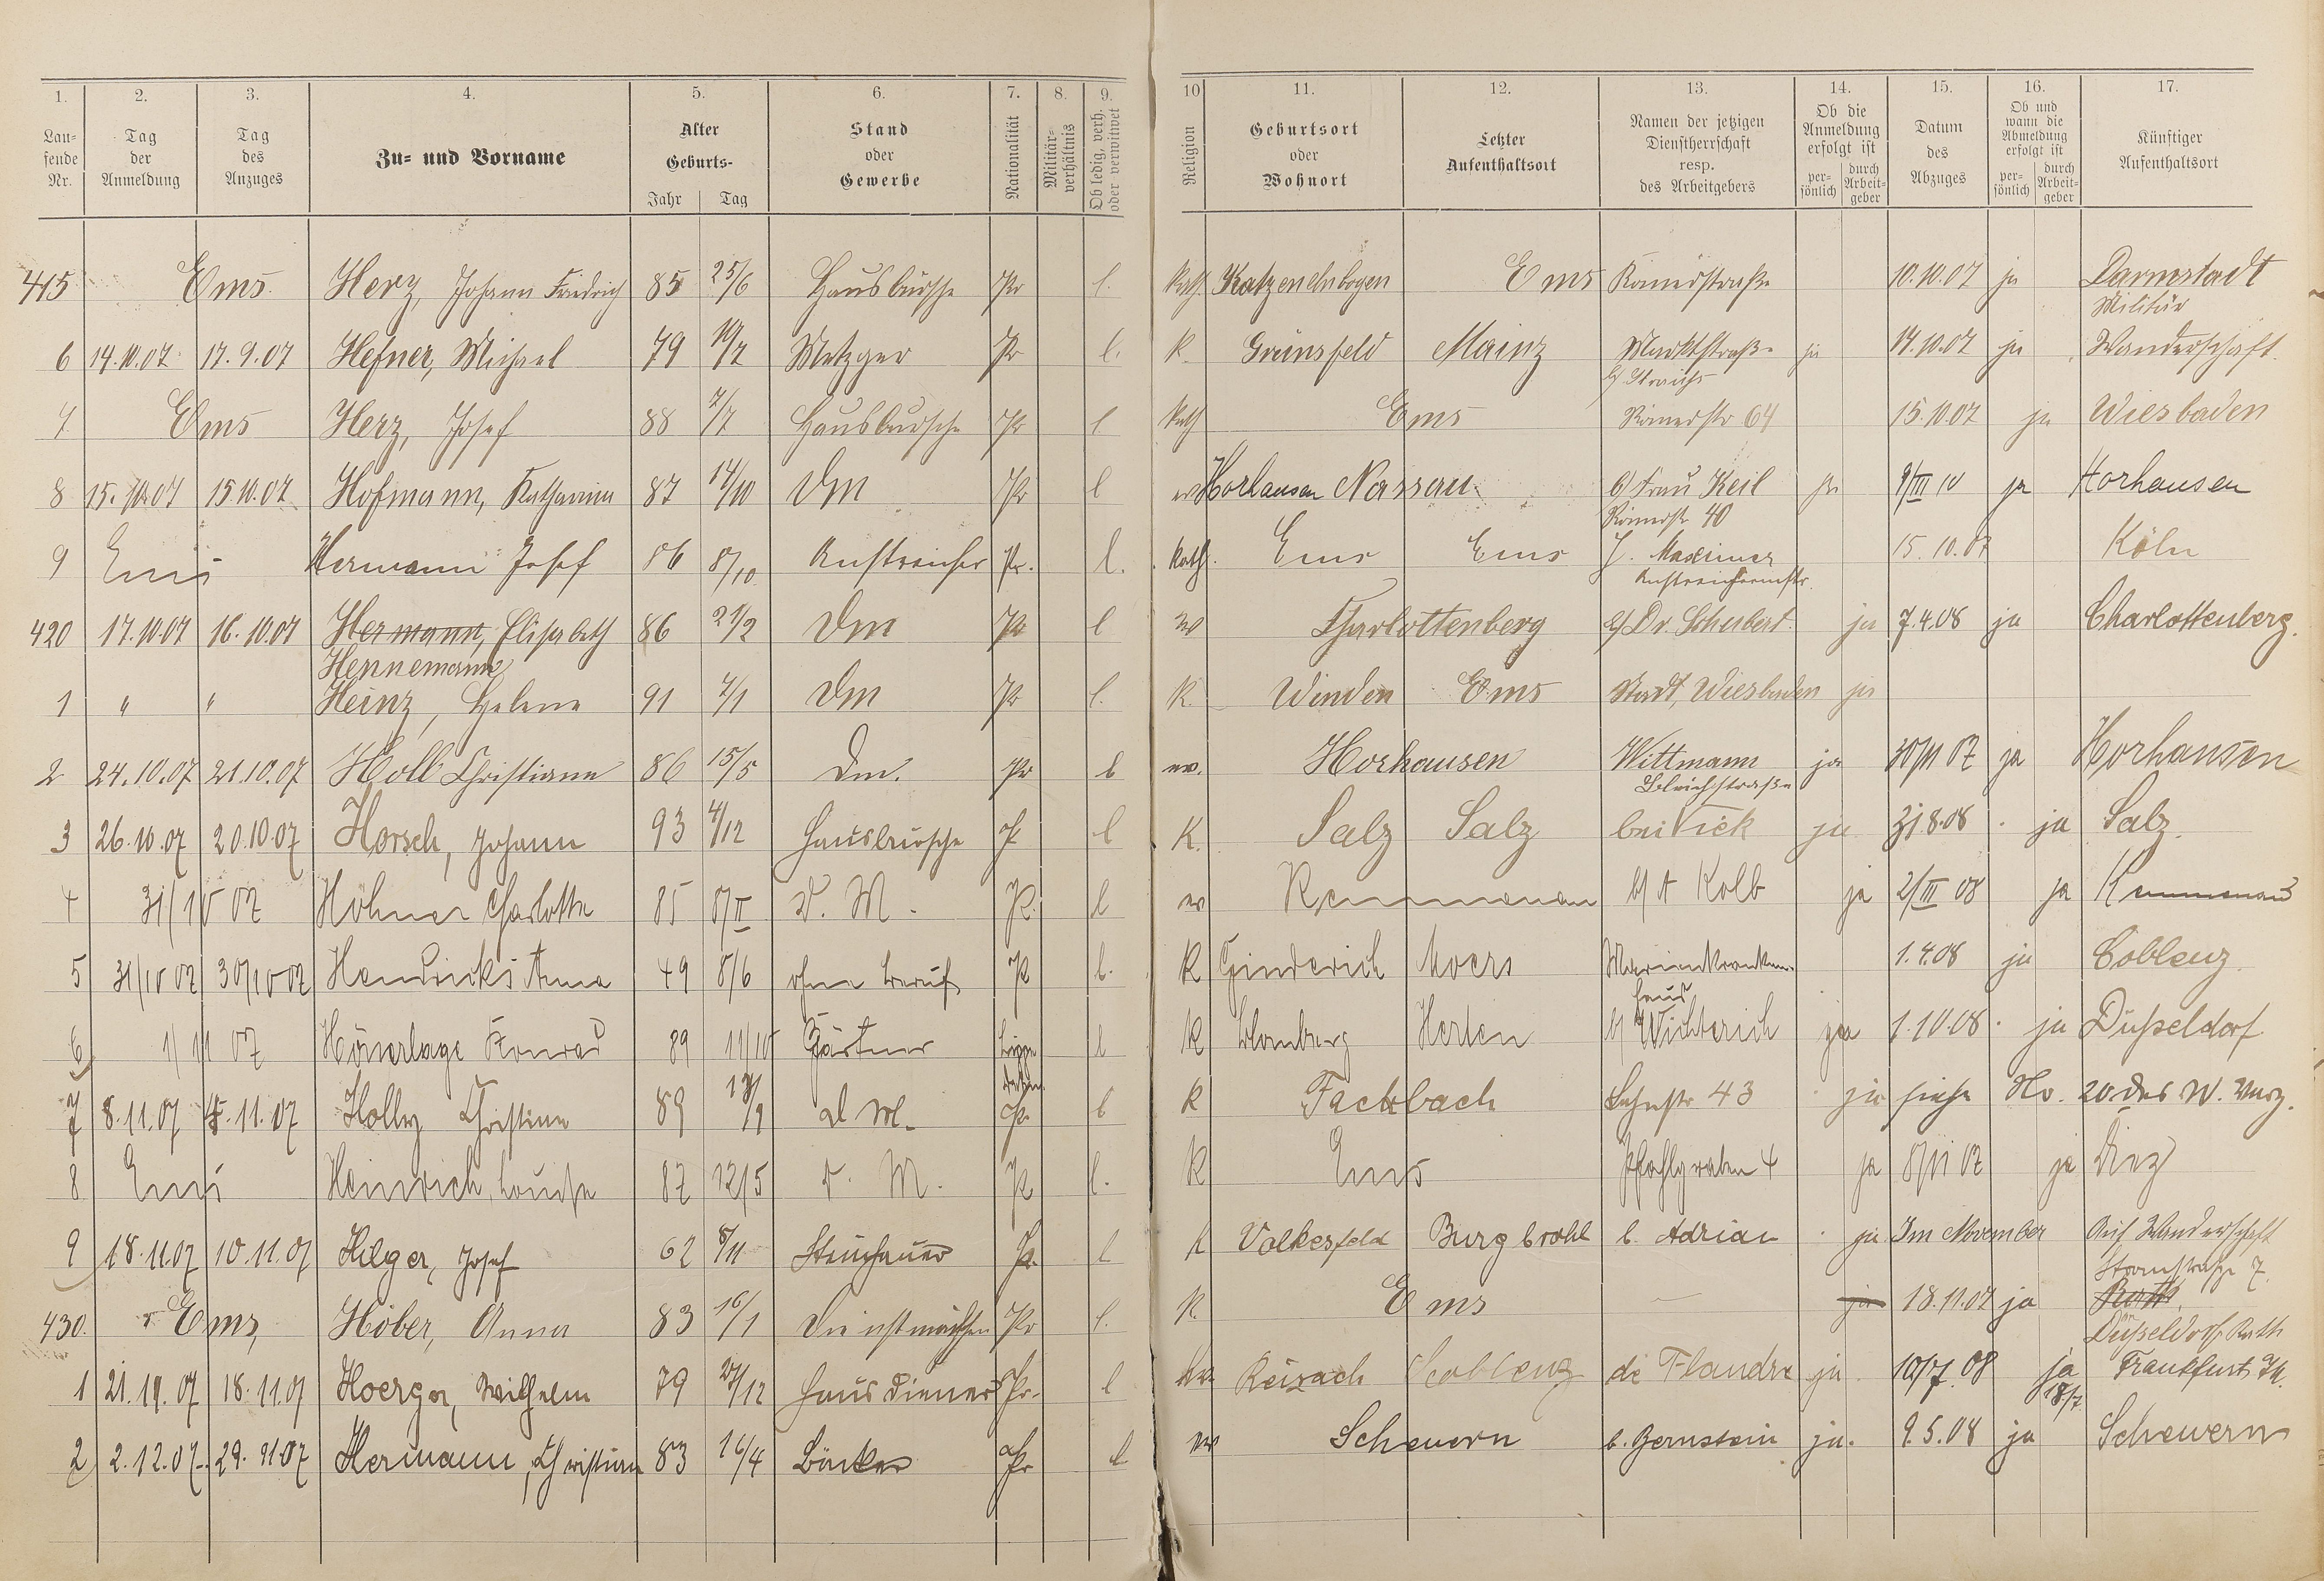 1. 2. 3. 4. 5. 6. 7. 8. 9. 10 11. 12. 13. 14. 15. 16. 17.
Lau=fende Nr. Tag der Anmeldung Tag des Anzuges Zu= und Vorname Alter Geburts- Jahr Tag Stand oder Gewerbe Nationalität Militär-verhältnis Ob ledig, verh. oder verwitwet Religion Geburtsort oder Wohnort Letzter Aufenthaltsort Namen der jetzigen Dienstherrschaft resp. des Arbeitgebers Ob die Anmeldung erfolgt ist per-sönlich durch Arbeit-geber Datum des Abzuges Ob und wann die Abmeldung erfolgt ist per-sönlich durch Arbeit-geber Künftiger Aufenthaltsort
415 Ems. Herz, Johann Friedrich 85 25/6 Hausbursche Pr l. Kath. Katzenelnbogen Ems Römerstraße 10.10.07 ja Darmstadt
Militär
6 14.10.07 17.9.07 Hefner, Michael 79 Metzger Pr l. K. Grünsfeld Mainz Marktstraße ja 14.10.07 ja Wanderschaft.
b/ Strauchs
7 Ems Herz, Josef 88 7/7 Hausbursche Pr l Kath Ems Römerstr 64 15.10.07 ja Wiesbaden
8 15.10.07 15.10.07 Hofmann, Katharina 87 14/10 Dm Pr l ev Horhausen Nassau b/ Frau Keil ja 9/III 10 ja Horhausen
Römerstr. 40
9 Ems Hermann Josef 86 8/10 Anstreicher Pr. l. Kath. Ems Ems J. Maximer 15.10.07 Köln
Anstreichermstr.
420 17.10.07 16.10.07 Hermann, Elisabeth 86 21/2 Dm Pr l ev Charlottenberg b/ Dr. Schubert. ja 7.4.08 ja Charlottenberg.
Hennemann
1 " " Heinz, Helene 91 7/1 Dm Pr l. K. Winden Ems Stadt, Wiesbaden ja
2 24.10.07 21.10.07 Holl Christiane 86 15/5 Dm. Pr l ev. Horhausen Wittmann ja 30/11 07 ja Horhausen
3 26.10.07 20.10.07 Horsch, Johann 93 4/12 Hausbursche P l K. Salz Salz bei Fick ja 31.8.08 ja Salz.
4 31/10 07 Höhner Charlotte 85 8/II D. M. Pr. l ev Kemmenau b/ A Kolb ja 2/III 08 ja Kemmenau
5 31/10 07 30/10 07 Hendricks Anna 49 8/6 ohne Beruf Pr l. K Ginderich Moers Marienkranken- 1.4.08 ja Coblenz
haus
6 1/11 07 Hönerlage Konrad 89 11/10 Gärtner Lippe l K Blomberg Herten b/ Wichterich ja 1.10.08. ja Düsseldorf
Detm.
7 8.11.07 5.11.07 Holly Christine 89 d M. Pr. l K Fachbach Lahnstr 43 ja siehe No. 20 des W. Verz.
8 Ems Heinrich Louise 87 12/5 D. M. Pr l. K Ems Pfahlgraben 4 ja 8/11 07 ja Diez
9 18.11.07 10.11.07 Hilger, Josef 62 8/11 Steinhauer Pr. l K Volkesfeld Burgbrohl b. Adrian ja Im November Auf Wanderschaft
430. Ems, Höber, Anna 83 16/1 Dienstmädchen Pr l. K. Ems — ja 18.11.07 ja Roth
Düsseldorf Rath
1 21.11.07 18.11.07 Hoerger, Wilhelm 79 27/12 Hausdiener Pr. l Reisach Coblenz de Flandre ja 10/7.08 ja Frankfurt M.
18/7.
2 2.12.07. 29.11.07 Hermann, Christian 83 16/4 Bäcker Pr l ev Scheuern b. Bernstein ja. 9.5.08 ja Scheuern